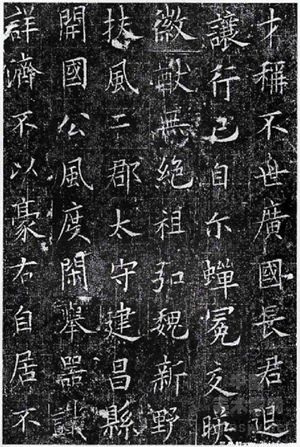 才稱不世廣國長君退
讓行己自尒蟬冕交暎
徽猷無絶祖弘魏新野
扶風二郡太守建昌縣
開國公風度閑舉器
詳濟不以豪右自居不